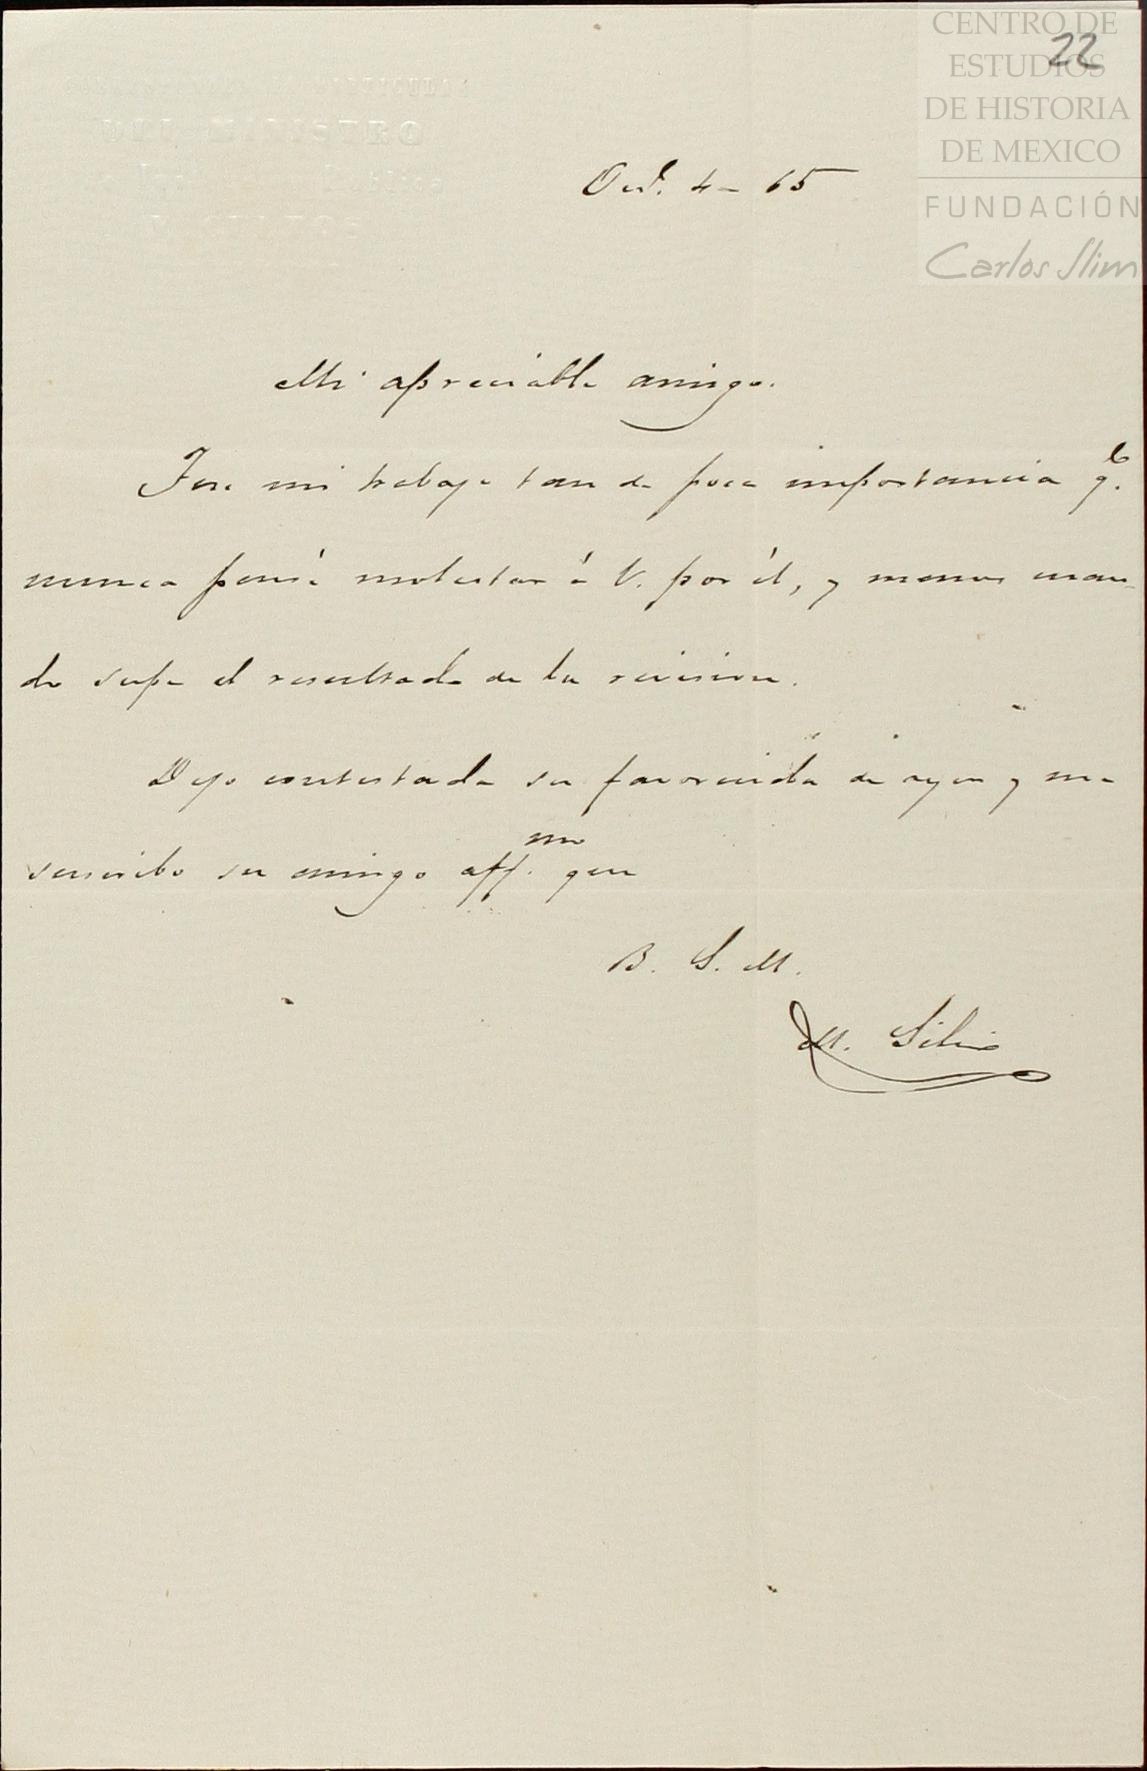 CENTRO DE
ESTUDIOS
DE HISTORIA
DE MEXICO
FUNDACIÓN
Carlos Slim
22
DEL MINISTRO
Oct. 4 - 65
Mi apreciable amigo.
Fue mi trabajo tan de poca importancia q.e
nunca pensé molestar á V. por él, y menos cuan-
do supe el resultado de la revision.
Dejo contestada su favorecida de ayer y me
suscribo su amigo aff.mo que
B. S. M.
M. Siliceo